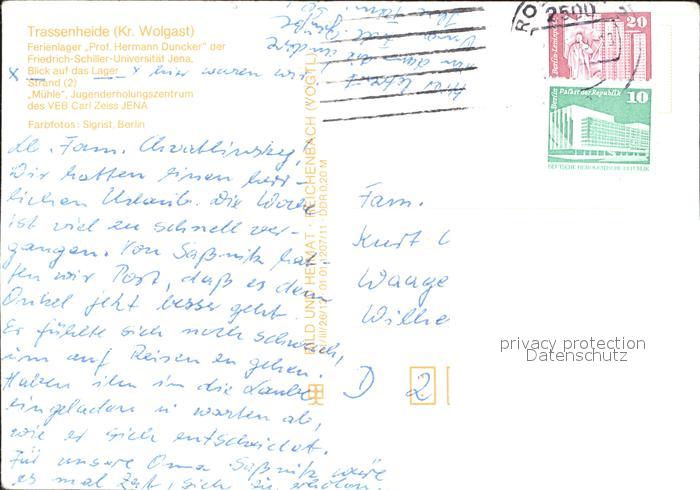 Trassenheide (Kr. Wolgast)
Ferienlager „Prof. Hermann Duncker" der
Friedrich-Schiller-Universität Jena,
Blick auf das Lager x hier waren wir
Strand (2)
„Mühle", Jugenderholungszentrum
des VEB Carl Zeiss JENA
Farbfotos: Sigrist, Berlin
Lb. Fam.
Wir hatten einen herr-
lichen Urlaub. Die Woche
ist viel zu schnell ver-
gangen. Von Saßnitz hat-
ten wir Post, daß es dem
Onkel jetzt besser geht.
Er fühlte sich noch schwach,
um auf Reisen zu gehen.
Haben ihn in die Laube
eingeladen u warten ab,
wie er sich entscheidet.
Für unsere Oma Saßnitz wäre
es mal Zeit, sich zu erholen.
BILD UND HEIMAT · REICHENBACH (VOGTL)
DDR 0,20 M
Fam.
Kurt
Waage
Wilhe
D 2
RO
2500
20
10
Berlin Palast der Republik
DEUTSCHE DEMOKRATISCHE REPUBLIK
privacy protection
Datenschutz